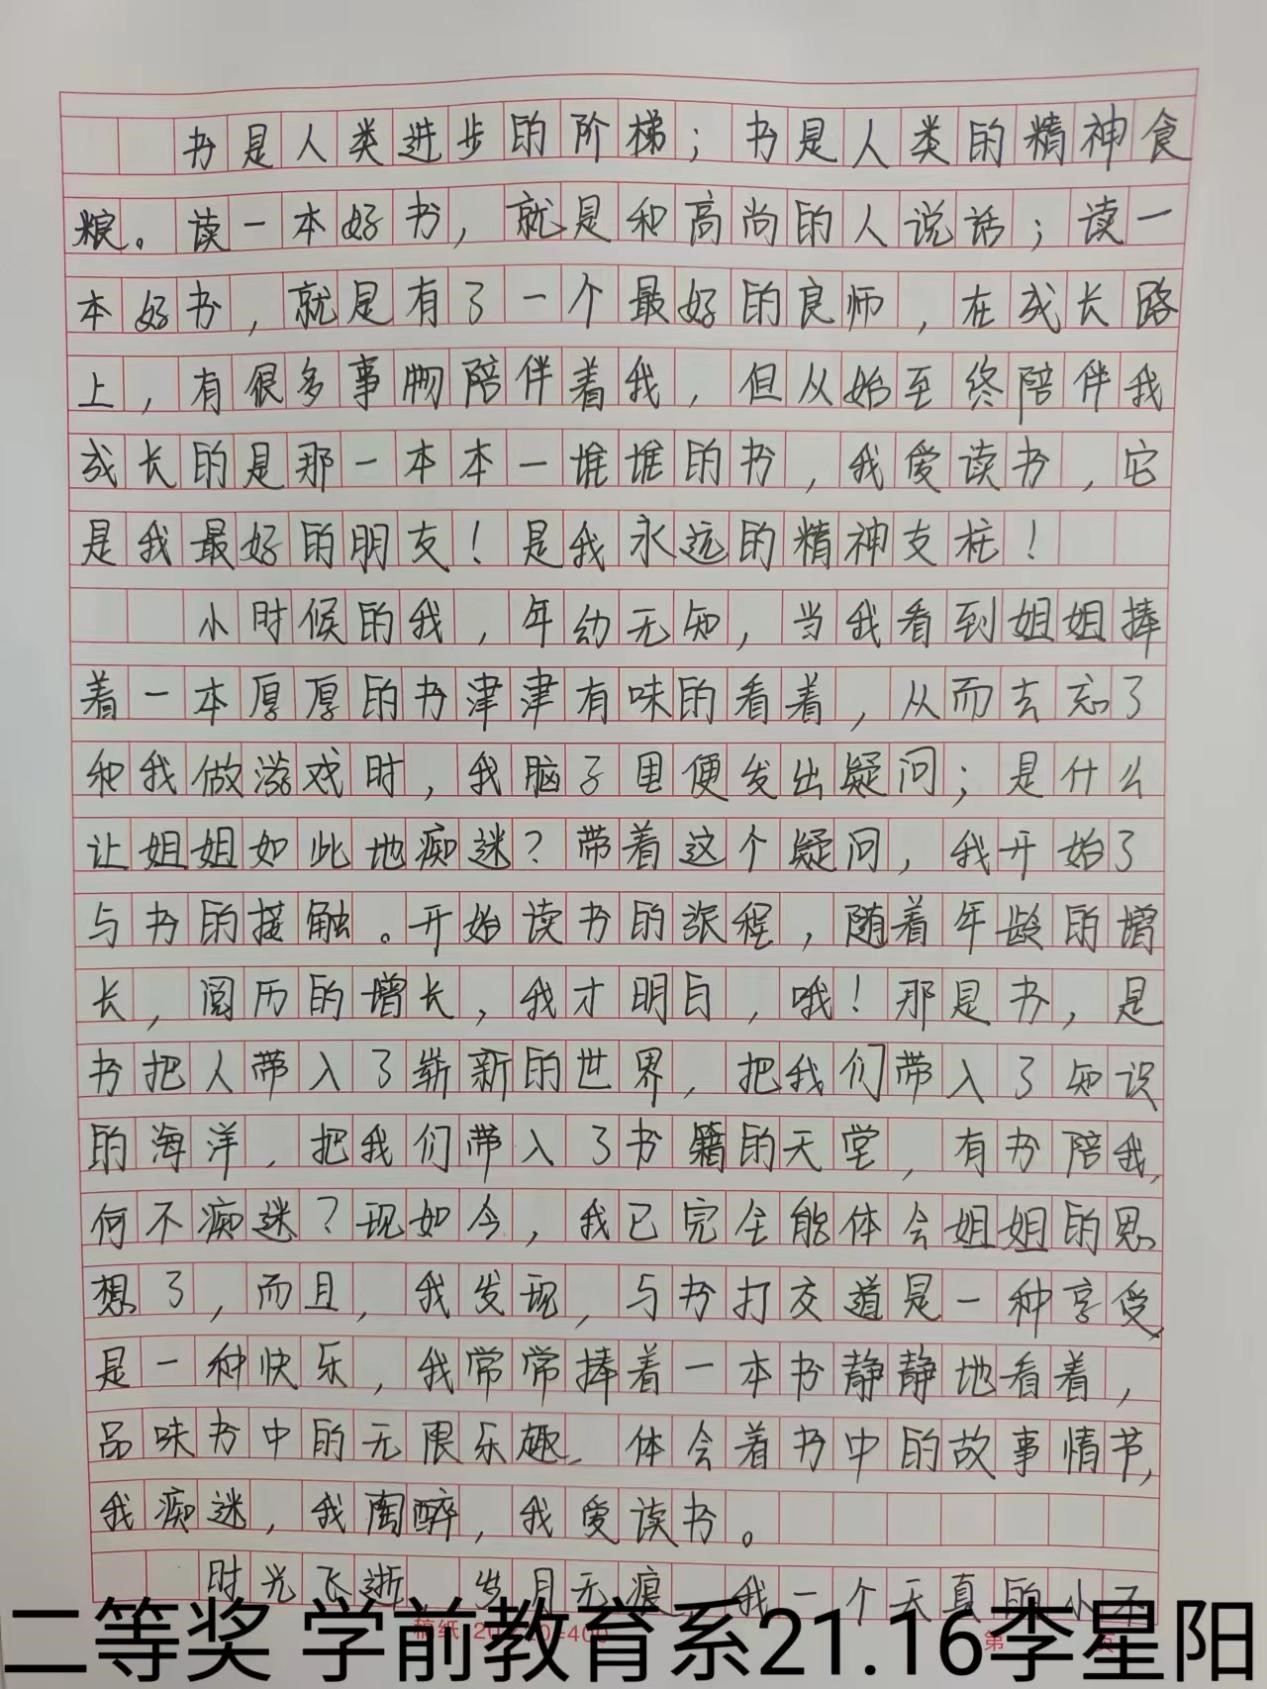 书是人类进步的阶梯；书是人类的精神食
粮。读一本好书，就是和高尚的人说话；读一
本好书，就是有了一个最好的良师，在成长路
上，有很多事物陪伴着我，但从始至终陪伴我
成长的是那一本本一堆堆的书，我爱读书，它
是我最好的朋友！是我永远的精神支柱！
小时候的我，年幼无知，当我看到姐姐捧
着一本厚厚的书津津有味的看着，从而去忘了
和我做游戏时，我脑子里便发出疑问；是什么
让姐姐如此地痴迷？带着这个疑问，我开始了
与书的接触。开始读书的旅程，随着年龄的增
长，阅历的增长，我才明白，哦！那是书，是
书把人带入了崭新的世界，把我们带入了知识
的海洋，把我们带入了书籍的天堂，有书陪我，
何不痴迷？现如今，我已完全能体会姐姐的思
想了，而且，我发现，与书打交道是一种享受，
是一种快乐，我常常捧着一本书静静地看着，
品味书中的无限乐趣，体会着书中的故事情节，
我痴迷，我陶醉，我爱读书。
时光飞逝 岁月无痕 我一个天真的小不
稿纸 20×20=400 第 页
二等奖 学前教育系21.16李星阳